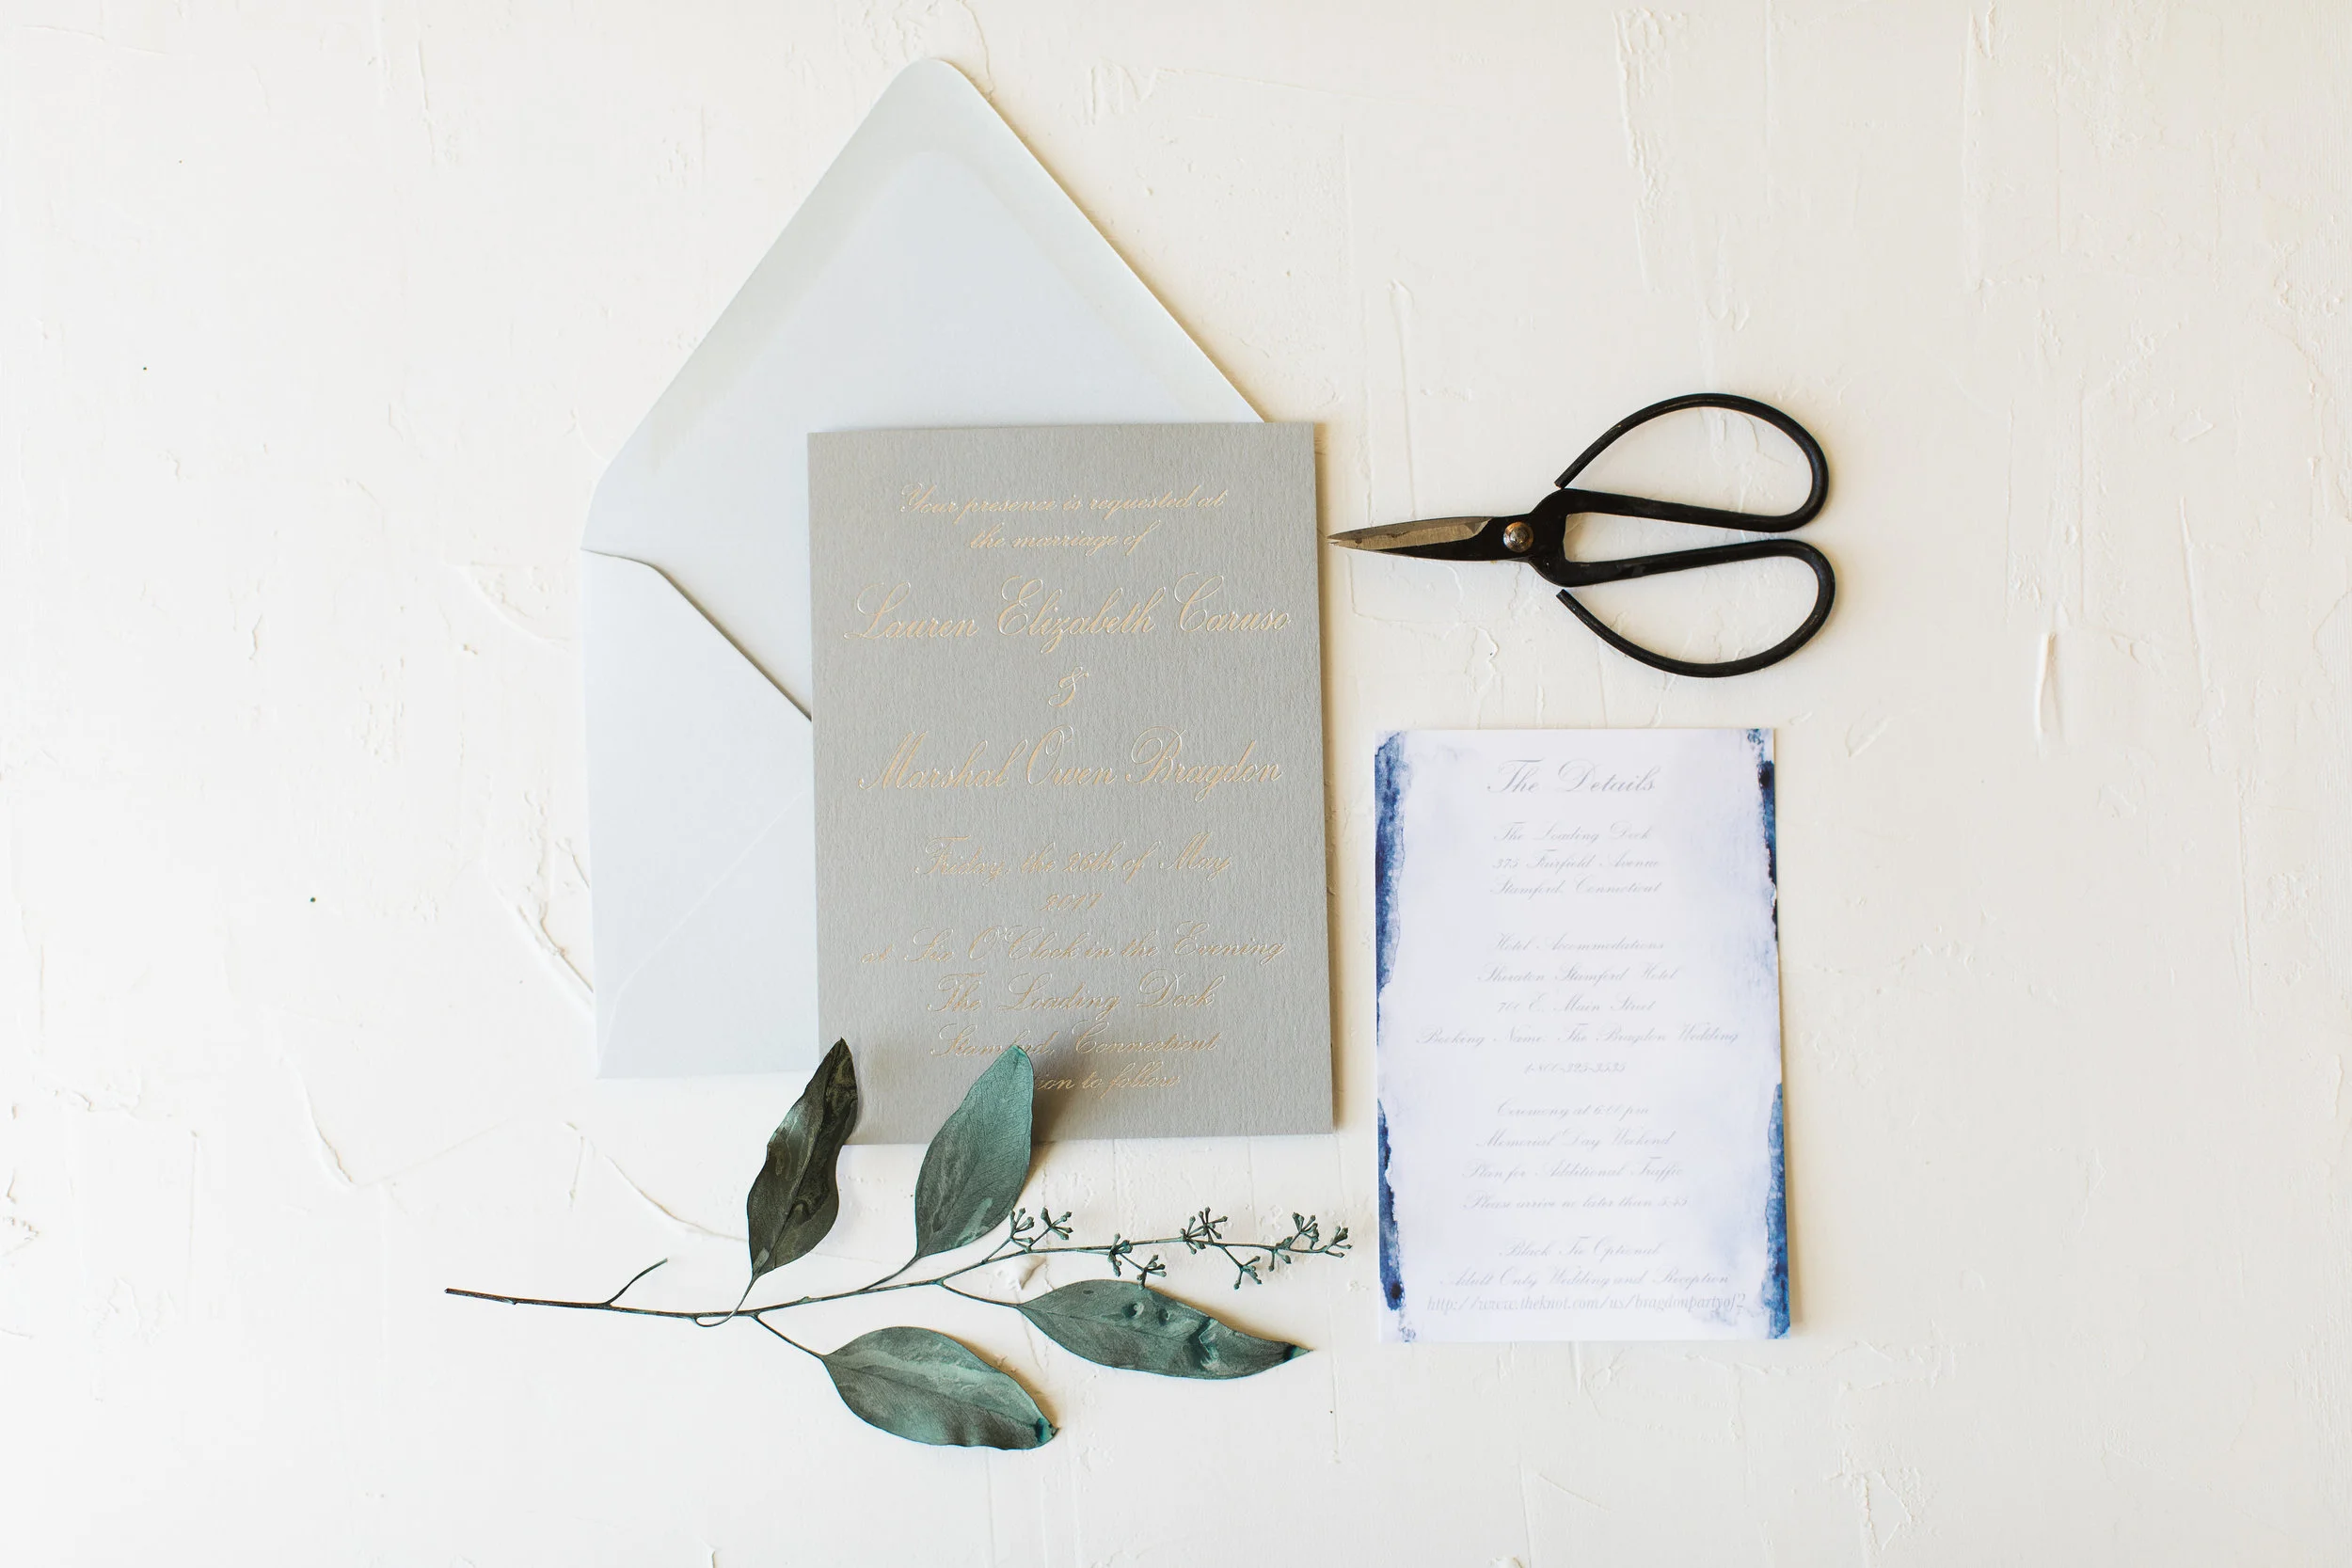 Your presence is requested at
the marriage of
Lauren Elizabeth Caruso
&
Marshal Owen Bragdon
Friday, the 26th of May
2017
at Six O'Clock in the Evening
The Loading Dock
Stamford, Connecticut
to follow
The Details
The Loading Dock
375 Fairfield Avenue
Stamford, Connecticut
Hotel Accommodations
Sheraton Stamford Hotel
700 E. Main Street
Booking Name: The Bragdon Wedding
1-800-325-3535
Ceremony at 6:00 pm
Memorial Day Weekend
Plan for Additional Traffic
Please arrive no later than 5:45
Black Tie Optional
Adult Only Wedding and Reception
http://www.theknot.com/us/bragdonpartyof2